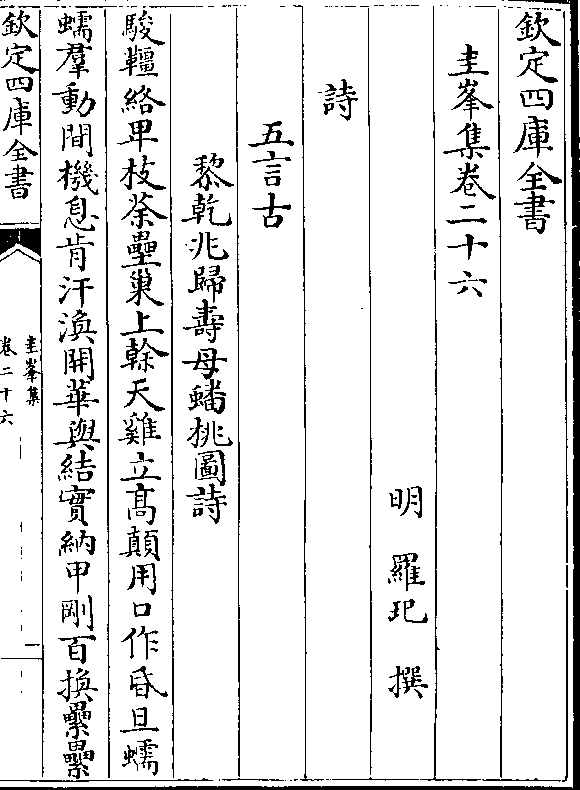 欽定四庫全書
圭峯集卷二十六
明 羅玘 撰
詩
五言古
黎乾兆歸壽母蟠桃圖詩
駿韁絡卑枝荼壘巢上榦天雞立高顛用口作昏旦蠕
蠕羣動間機息肯汗渙開華與結實納甲剛百換纍纍
欽定四庫全書
圭峯集
卷二十六
一